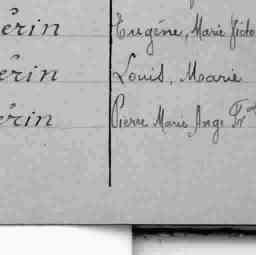 érin Eugène, Marie Victo
érin Louis, Marie
érin Pierre Marie Ange Fr